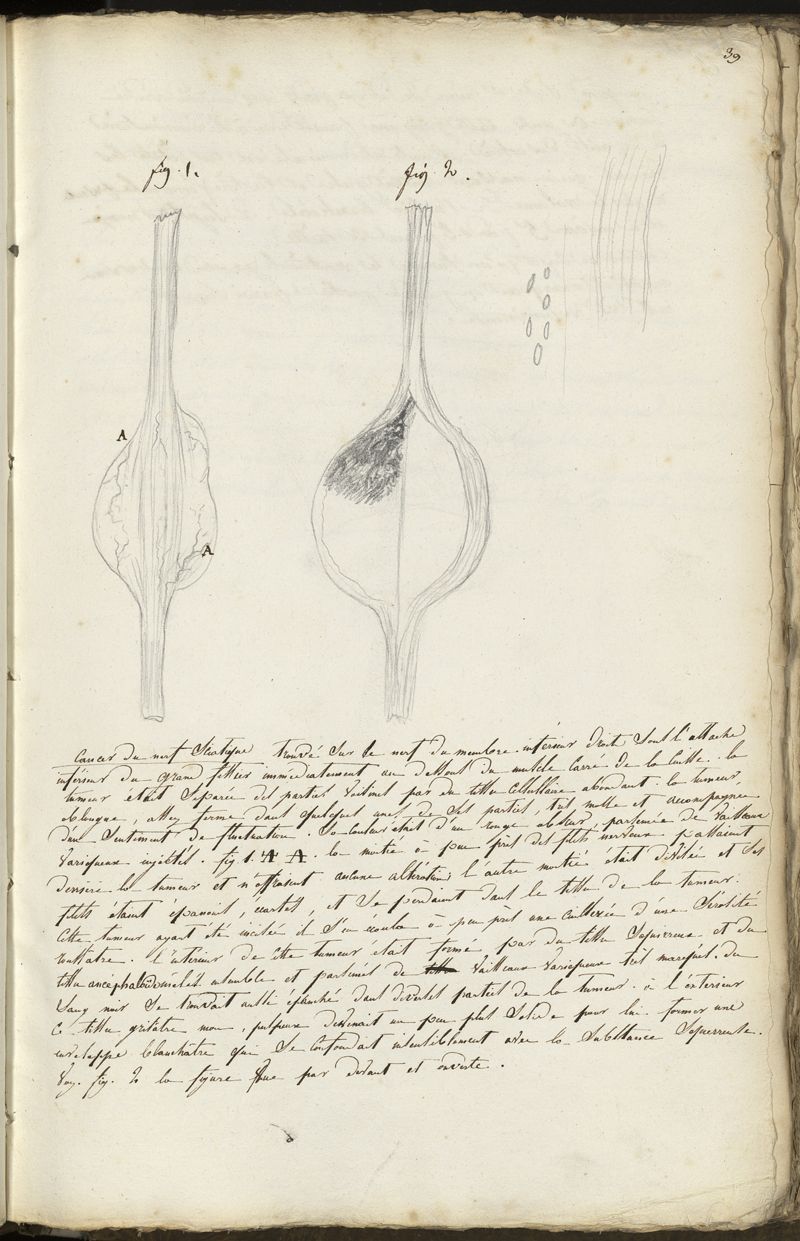 39
fig. 1.
fig. 2.
A
A
Cancer du nerf Sciatique trouvé sur le nerf du membre inférieur droit sous l'attache
inférieur du grand fessier immédiatement au dessous du muscle Carré de la Cuisse. la
tumeur était séparée des parties voisines par du tissu Cellullaire abondant. la tumeur,
oblongue, assez ferme dans quelques unes de ses parties, très molle et accompagnée
d'un Sentiment de fluctuation. Sa couleur était d'un rouge obscur, parsemée de Vaisseaux
Variqueux injectés. fig 1. A A. la moitié à peu près des filets nerveux passaient
derriere la tumeur et n'offraient aucune altération; l'autre moitié était divisée et ses
filets étaient épanouis, écartés, et se perdaient dans le tissu de la tumeur.
Cette tumeur ayant été incisée il s'en écoula à peu près une cuillerée d'une Sérosité
roussatre. l'intérieur de cette tumeur était formé par du tissu Squirreux et du
tissu encéphaloïde mêlés ensemble et parsemés de Vaisseaux Variqueux très marqués. du
Sang noir se trouvait aussi épanché dans diverses parties de la tumeur. à l'extérieur
ce tissu grisâtre mou, pulpeux devenait un peu plus Solide pour lui former une
enveloppe blanchâtre qui se confondait insensiblement avec la Substance Squirreuse.
Voy. fig. 2 la figure vue par devant et ouverte.